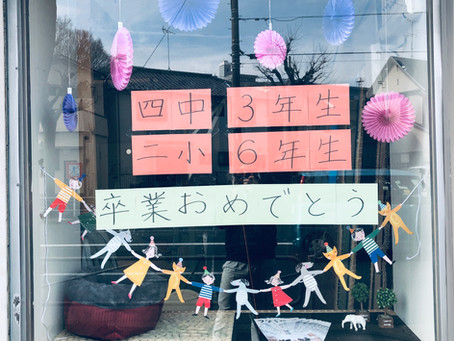 四中 3年生
二小 6年生
卒業おめでとう